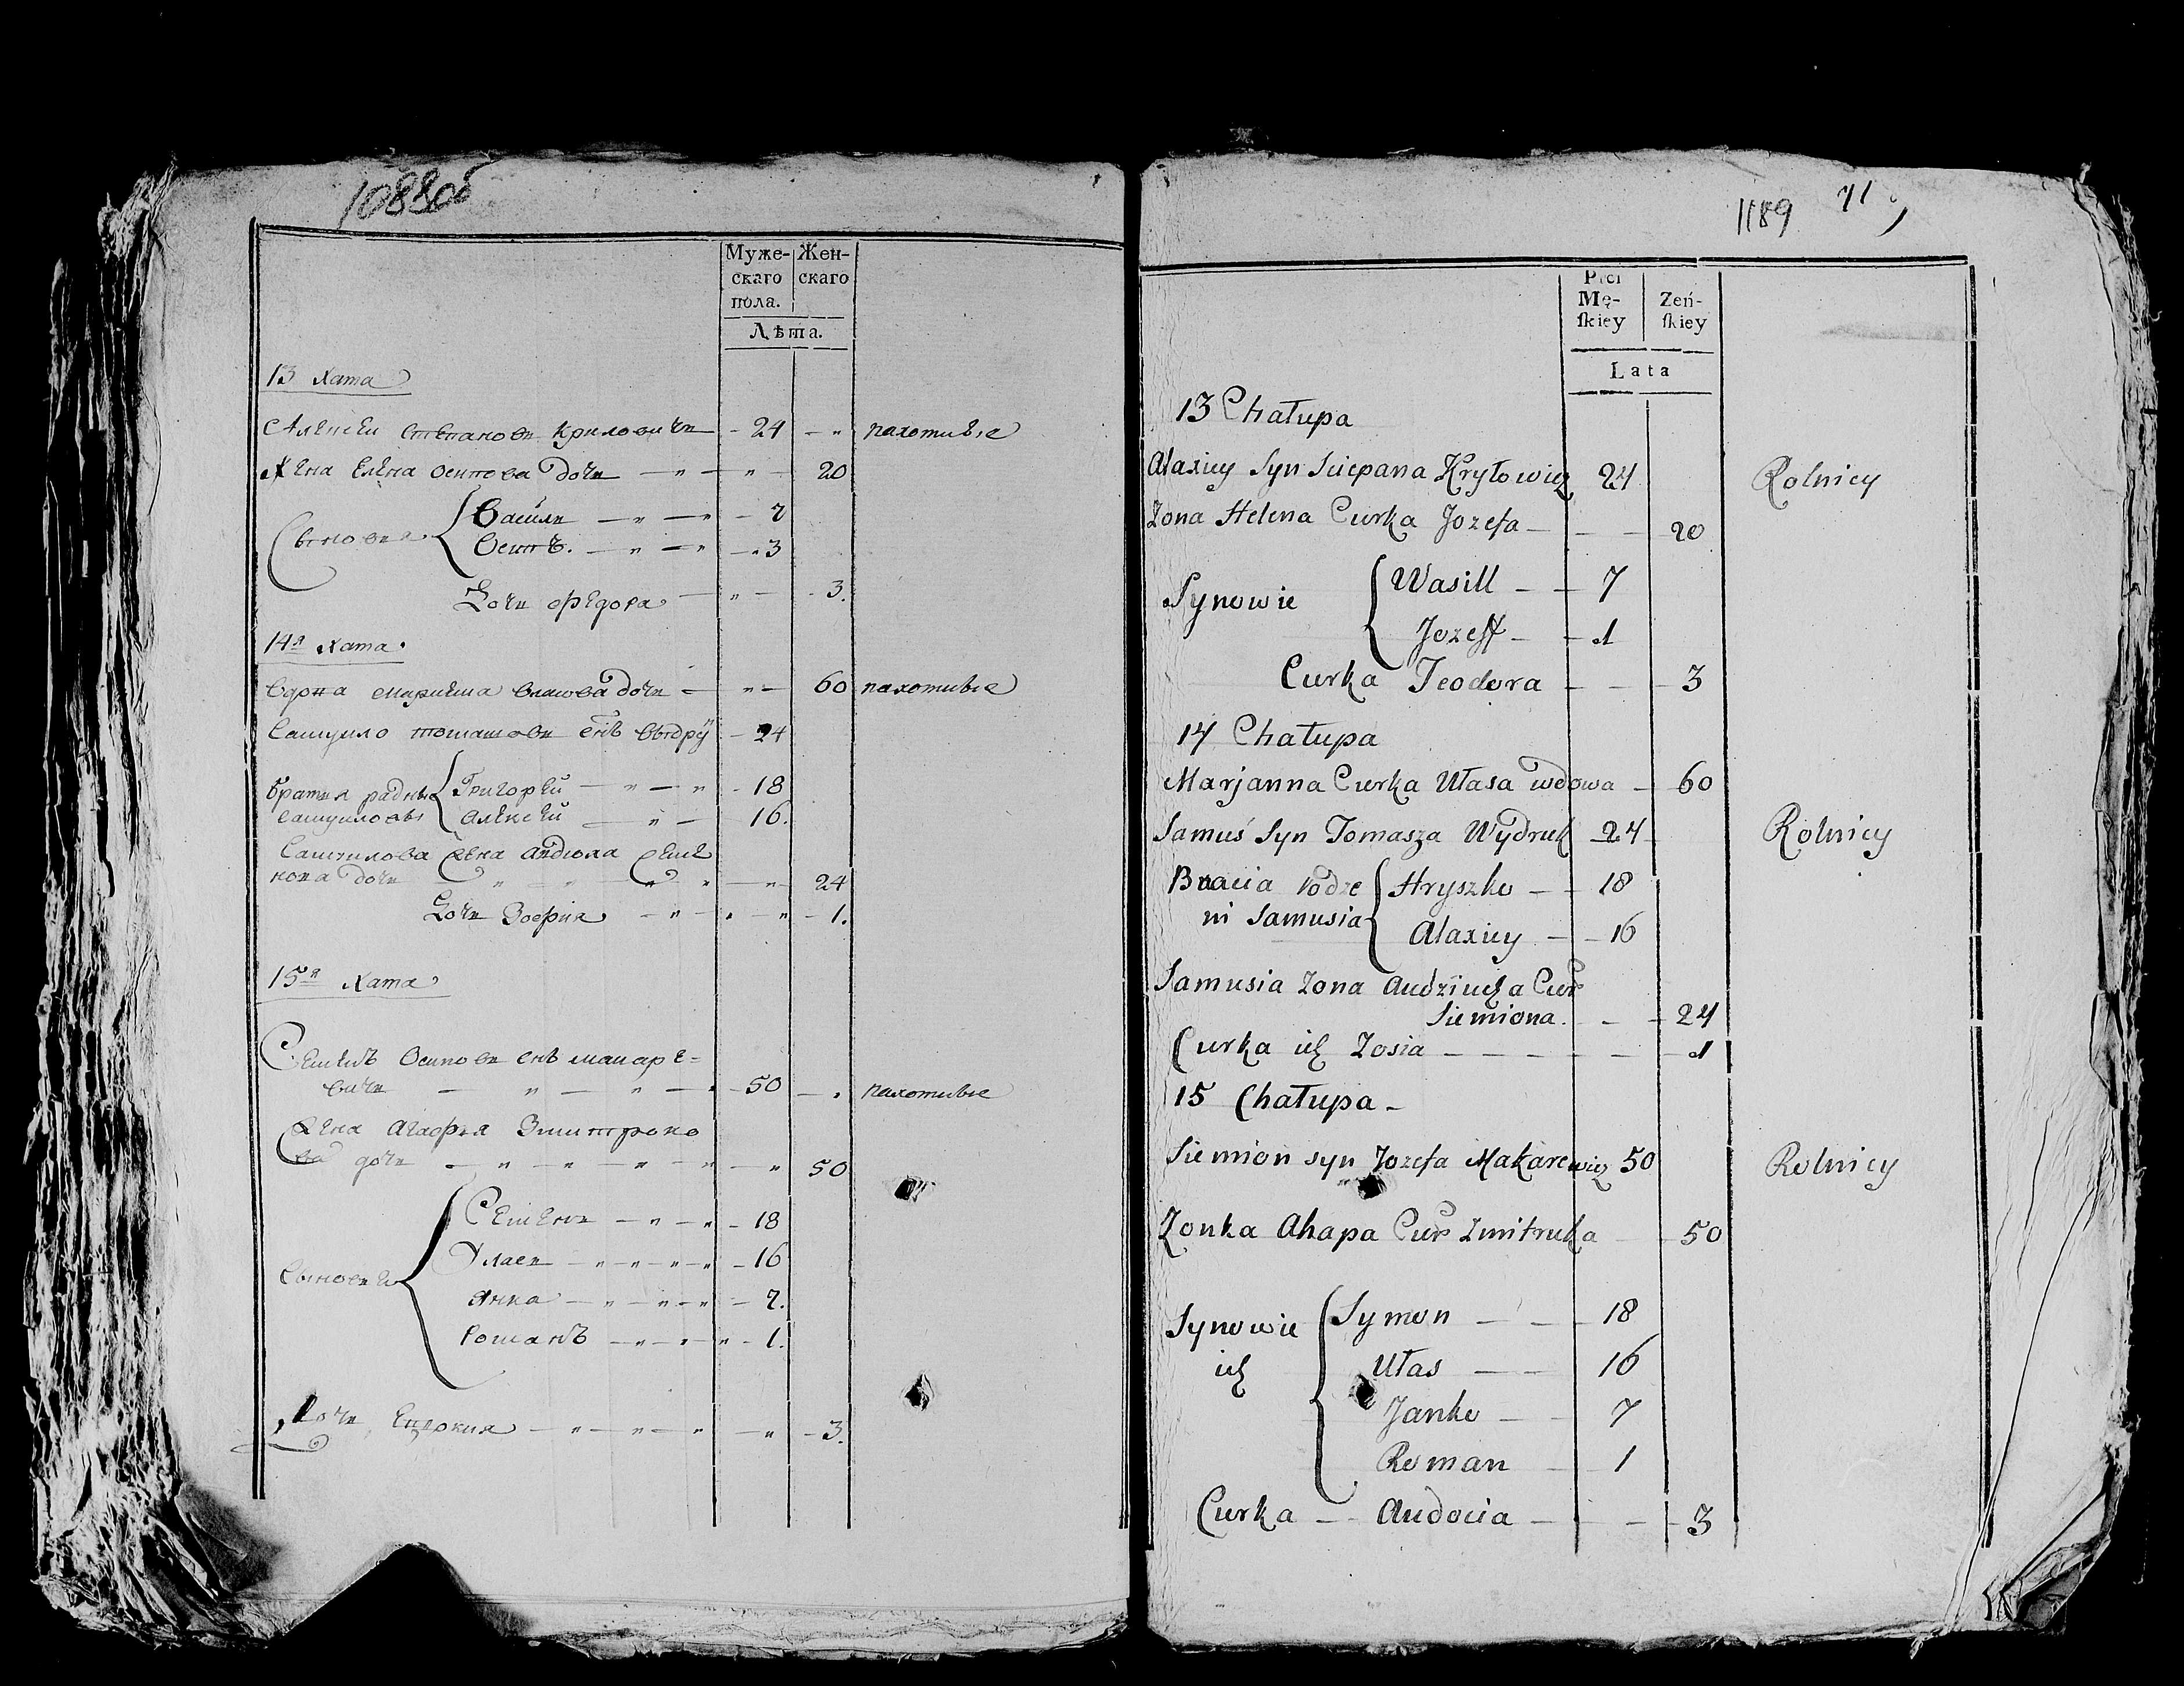 1088об
Муже- Жен-
скаго скаго
пола.
Лѣта.
13 хата
Алексеи степановъ Криловичъ - 24 - " пахотные
Жена Елена осипова дочь — " — " — 20
Сынове Василь — " — " - 7
Осипъ. — " — " - 3
Дочь Федора — " — - 3.
14я хата.
вдона мариана власова дочь — " — 60 пахотные
Самуило томашовъ снъ выдру - 24
братья радные Григорей — " — " - 18
самуиловы алексей — " — 16.
Самуилова жена авдюха семе
нова дочь — " — " — " — " — 24
Дочь Зофия — " — " - 1.
15я хата
Семенъ Осиповъ снъ макаре-
вичь — " — " — - 50 — " пахотные
жена агафия Змитроко
ва дочь — " — " — " — " 50
Сынове Семенъ — " — " - 18
Улас — " — " — " - 16
Янка — " — " — 7.
Романъ — " — " - 1.
Дочь, Евдокия — " — " — " — " - 3.
1189 71
Płci
Mę- Zeń-
skiey skiey
Lata
13 Chałupa
Alaxiey Syn Sciepana Kryłowicz 24 Rolnicy
Zona Helena Curka Jozefa — — — 20
Synowie Wasill — — 7
Jozeff — — 1
Curka Teodora — — — 3
14 Chałupa
Marjanna Curka Ułasa wdowa — 60
Samuś Syn Tomasza Wydruk — 24 Rolnicy
Bracia rodze Hryszko — — 18
ni Samusia Alaxiey — — 16
Samusia Zona Audziucha Cur
Siemiona. — — 24
Curka ich Zosia — — — — — 1
15 Chałupa —
Siemion syn Jozefa Makarewicz 50 Rolnicy
Zonka Ahapa Cur Zmitruka — 50
Synowie Symon — — 18
ich Ułas — — 16
Janko — 7
Roman — 1
Curka — Audocia — — — 3